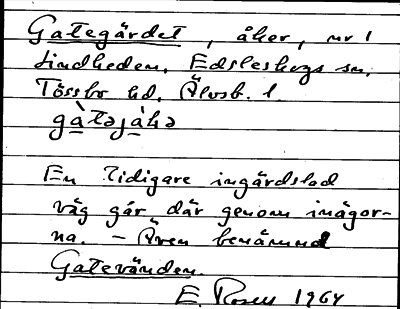 Gategärdet, åker, nr 1
Lindheden, Edsleskogs sn,
Tössbo hd, Älvsb. l.
gàtəjàḷə
En tidigare ingärdslad
väg går där genom inägor-
na. – Även benämnd
Gatevänden.
E. Rosen 1964